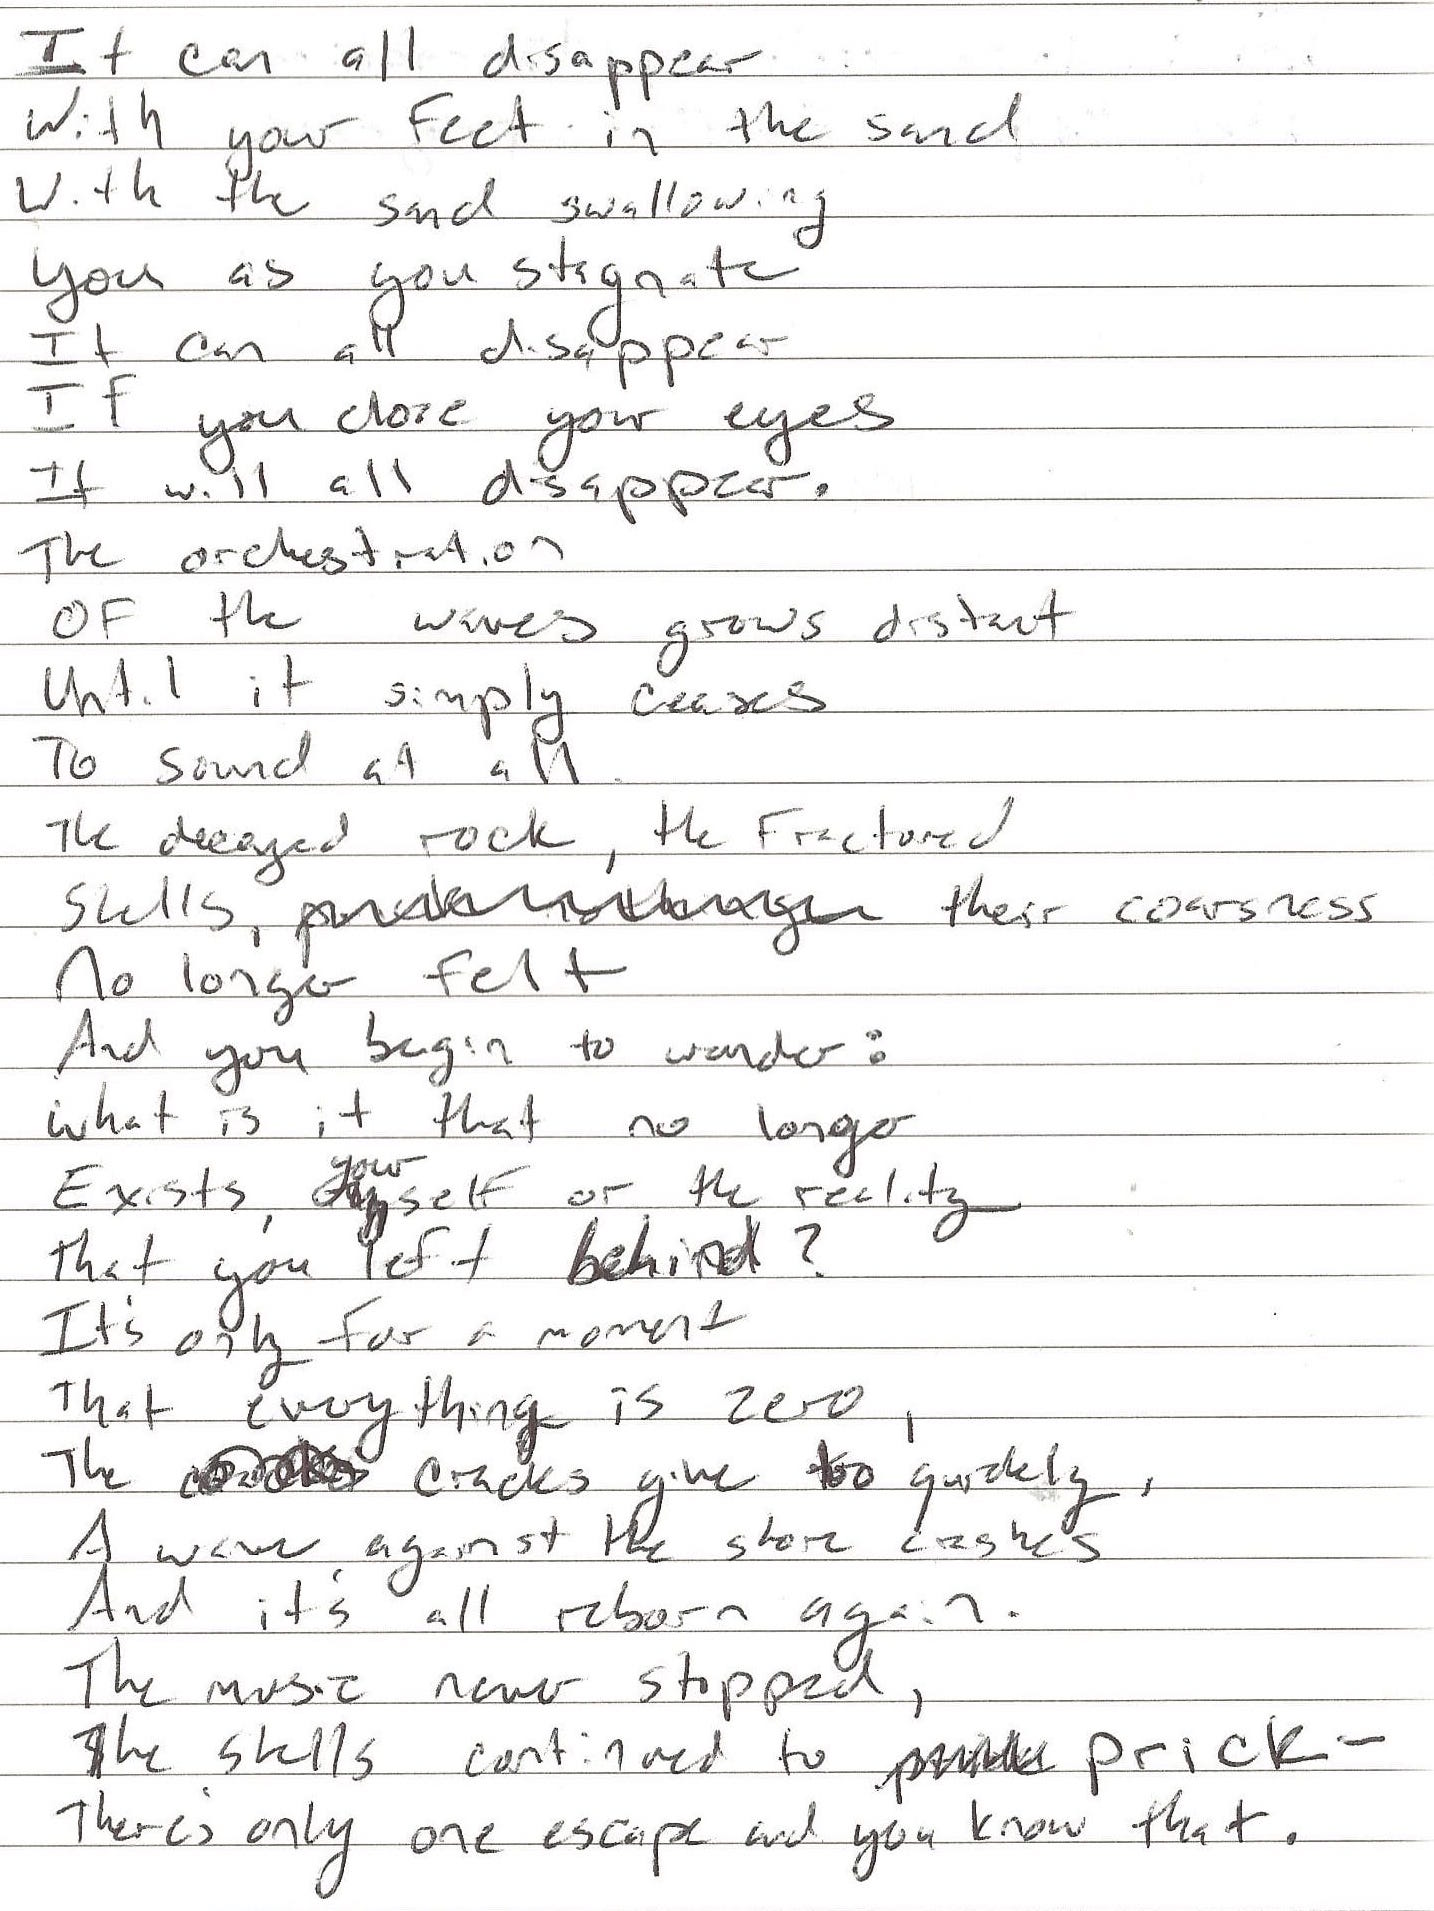 It can all disappear
With your Feet in the sand
With the sand swallowing
you as you stagnate
It can all disappear
If you close your eyes
It will all disappear.
The orchestration
OF the waves grows distant
Until it simply ceases
To sound at all.
The decayed rock, the Fractured
Shells, their coarsness
No longer felt
And you begin to wonder:
what is it that no longer
Exists, yourself or the reality
That you left behind?
It's only for a moment
That everything is zero,
The cracks give too quickly,
A wave against the shore crashes
And it's all reborn again.
The music never stopped,
The shells continued to prick-
There's only one escape and you know that.